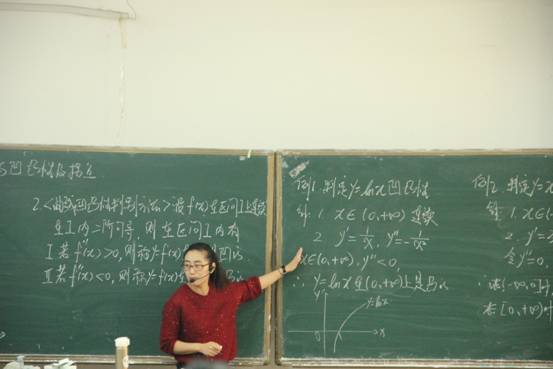 凹凸性与拐点
2.<曲线凹凸性判别方法>设f(x)在区间I上连续
在I内=阶可导,则在区间I内有
I若f''(x)>0,则称y=f(x)
II若f''(x)<0,则称y=f(x)
例1.判定y=lnx凹凸性
解:1.x∈(0,+∞)连续
2.y'=1/x,y''=-1/x²
x∈(0,+∞),y''<0
∴y=lnx在(0,+∞)上是凸的
y
y=lnx
x
例2.判定y=
解:1.x∈(
2.y'=
令y''=0
在(-∞,0]
在[0,+∞)